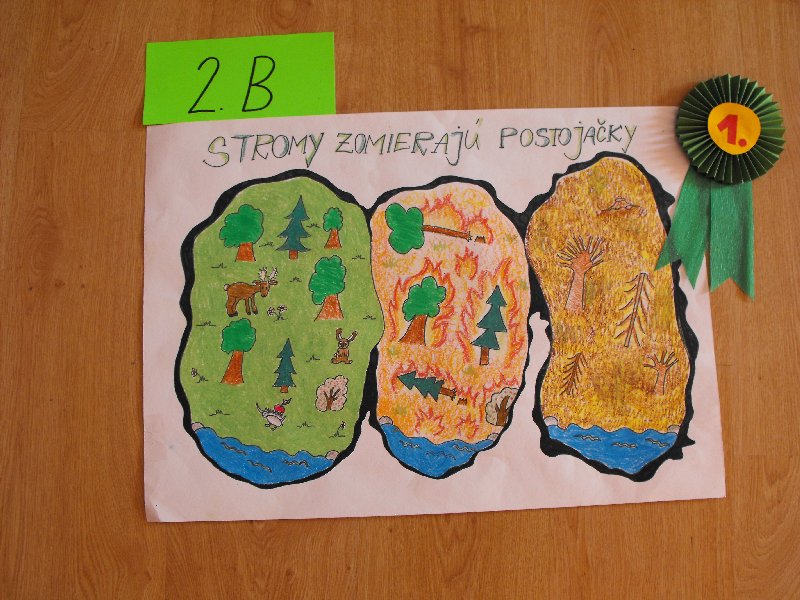 2. B
STROMY ZOMIERAJÚ POSTOJAČKY
1.